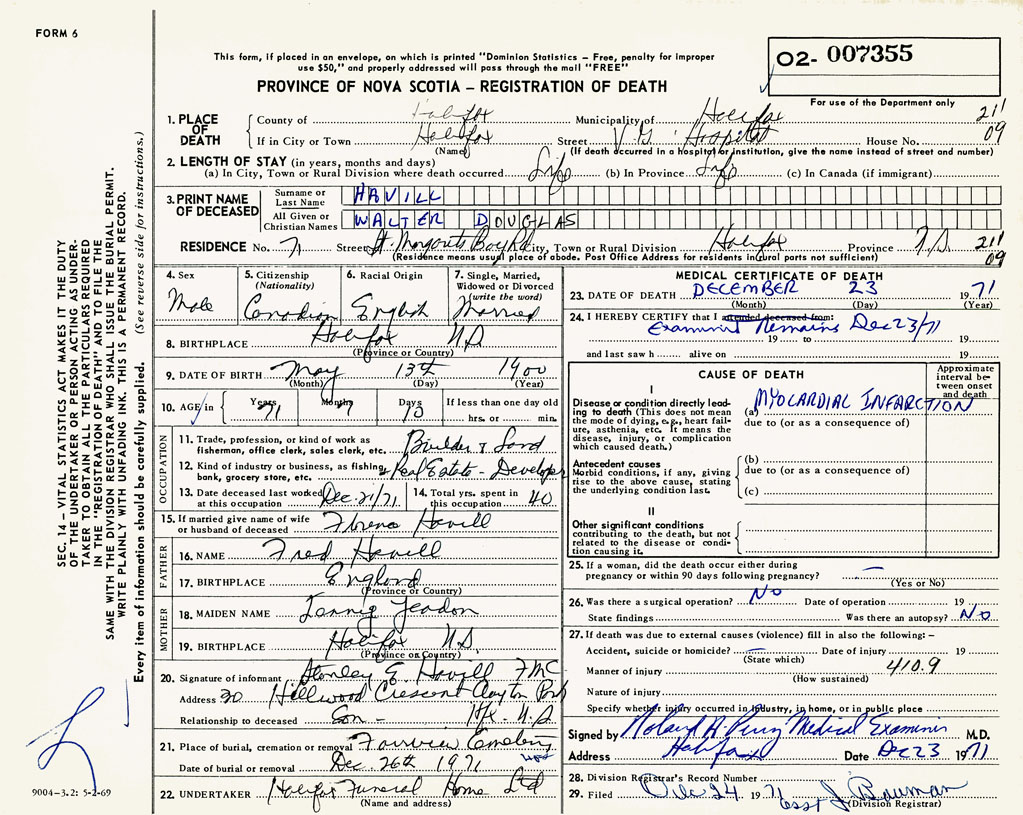 FORM 6
This form, if placed in an envelope, on which is printed "Dominion Statistics – Free, penalty for improper
use $50," and properly addressed will pass through the mail "FREE"
02- 007355
PROVINCE OF NOVA SCOTIA – REGISTRATION OF DEATH
For use of the Department only
1. PLACE OF DEATH
County of Halifax Municipality of Halifax 211
If in City or Town Halifax Street V G Hospital House No. 09
(Name) (If death occurred in a hospital or institution, give the name instead of street and number)
2. LENGTH OF STAY (in years, months and days)
(a) In City, Town or Rural Division where death occurred Life (b) In Province Life (c) In Canada (if immigrant)
3. PRINT NAME OF DECEASED
Surname or Last Name HAVILL
All Given or Christian Names WALTER DOUGLAS
RESIDENCE No. 71 Street St. Margarets Bay Rd City, Town or Rural Division Halifax Province N.S. 211
(Residence means usual place of abode. Post Office Address for residents in rural parts not sufficient) 09
4. Sex
Male
5. Citizenship
(Nationality)
Canadian
6. Racial Origin
English
7. Single, Married,
Widowed or Divorced
(write the word)
Married
8. BIRTHPLACE Halifax N.S
(Province or Country)
9. DATE OF BIRTH May 13th 1900
(Month) (Day) (Year)
10. AGE in Years 71 Months 7 Days 10 If less than one day old
hrs. or min.
OCCUPATION
11. Trade, profession, or kind of work as
fisherman, office clerk, sales clerk, etc. Builder & Land
12. Kind of industry or business, as fishing,
bank, grocery store, etc. & Real Estate - Develope
13. Date deceased last worked
at this occupation Dec. 21/71
14. Total yrs. spent in
this occupation 40
15. If married give name of wife
or husband of deceased Havill
FATHER
16. NAME Fred Havill
17. BIRTHPLACE England
(Province or Country)
MOTHER
18. MAIDEN NAME Yeadon
19. BIRTHPLACE Halifax N.S.
(Province or Country)
20. Signature of informant Stanley E. Havill
Address 30 Hillwood Crescent Clayton Park
Relationship to deceased Son - Hfx. N.S
21. Place of burial, cremation or removal Fairview Cemetery
Date of burial or removal Dec. 26th 1971
22. UNDERTAKER Halifax Funeral Home Ltd
(Name and address)
MEDICAL CERTIFICATE OF DEATH
23. DATE OF DEATH DECEMBER 23 1971
(Month) (Day) (Year)
24. I HEREBY CERTIFY that I attended deceased from:
Examined Remains Dec 23/71
19 to 19
and last saw h alive on 19
CAUSE OF DEATH
Approximate interval between onset and death
I
Disease or condition directly leading to death (This does not mean the mode of dying, e.g., heart failure, asthenia, etc. It means the disease, injury, or complication which caused death.)
(a) MYOCARDIAL INFARCTION
due to (or as a consequence of)
Antecedent causes
Morbid conditions, if any, giving rise to the above cause, stating the underlying condition last.
(b)
due to (or as a consequence of)
(c)
II
Other significant conditions
contributing to the death, but not related to the disease or condition causing it.
25. If a woman, did the death occur either during
pregnancy or within 90 days following pregnancy? —
(Yes or No)
26. Was there a surgical operation? No Date of operation 19
State findings Was there an autopsy? No
27. If death was due to external causes (violence) fill in also the following: –
Accident, suicide or homicide? — Date of injury 19
(State which)
Manner of injury 410.9
(How sustained)
Nature of injury
Specify whether injury occurred in industry, in home, or in public place
Signed by Roland A. Perry Medical Examiner M.D.
Address Halifax Date Dec 23 1971
28. Division Registrar's Record Number
29. Filed Dec 24 1971 Asst J. Bauman
(Division Registrar)
SEC. 14 – VITAL STATISTICS ACT MAKES IT THE DUTY
OF THE UNDERTAKER OR PERSON ACTING AS UNDER-
TAKER TO OBTAIN ALL THE PARTICULARS REQUIRED
IN THE "REGISTRATION OF DEATH" AND TO FILE THE
SAME WITH THE DIVISION REGISTRAR WHO SHALL ISSUE THE BURIAL PERMIT.
WRITE PLAINLY WITH UNFADING INK. THIS IS A PERMANENT RECORD.
Every item of information should be carefully supplied. (See reverse side for instructions.)
9004-3.2: 5-2-69